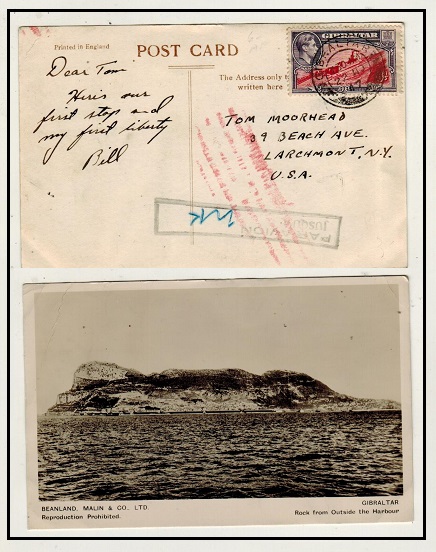 Printed in England
POST CARD
GIBRALTAR
The Address only to
written here
Dear Tom
Here's our
first stop and
my first liberty
Bill
TOM MOORHEAD
39 BEACH AVE.
LARCHMONT, N.Y.
U.S.A.
PAR AVION
JUSQU'A
BEANLAND, MALIN & CO., LTD.
Reproduction Prohibited.
GIBRALTAR
Rock from Outside the Harbour